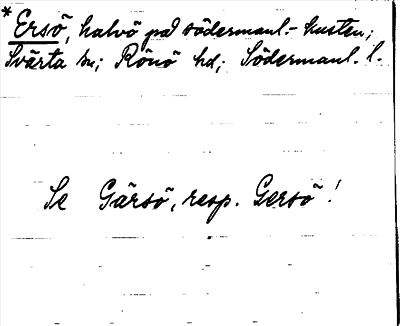 * Ersö, halvö på södermanl.- kusten;
Svärta sn; Rönö hd; Södermanl. l.
Se Gärsö, resp. Gersö!